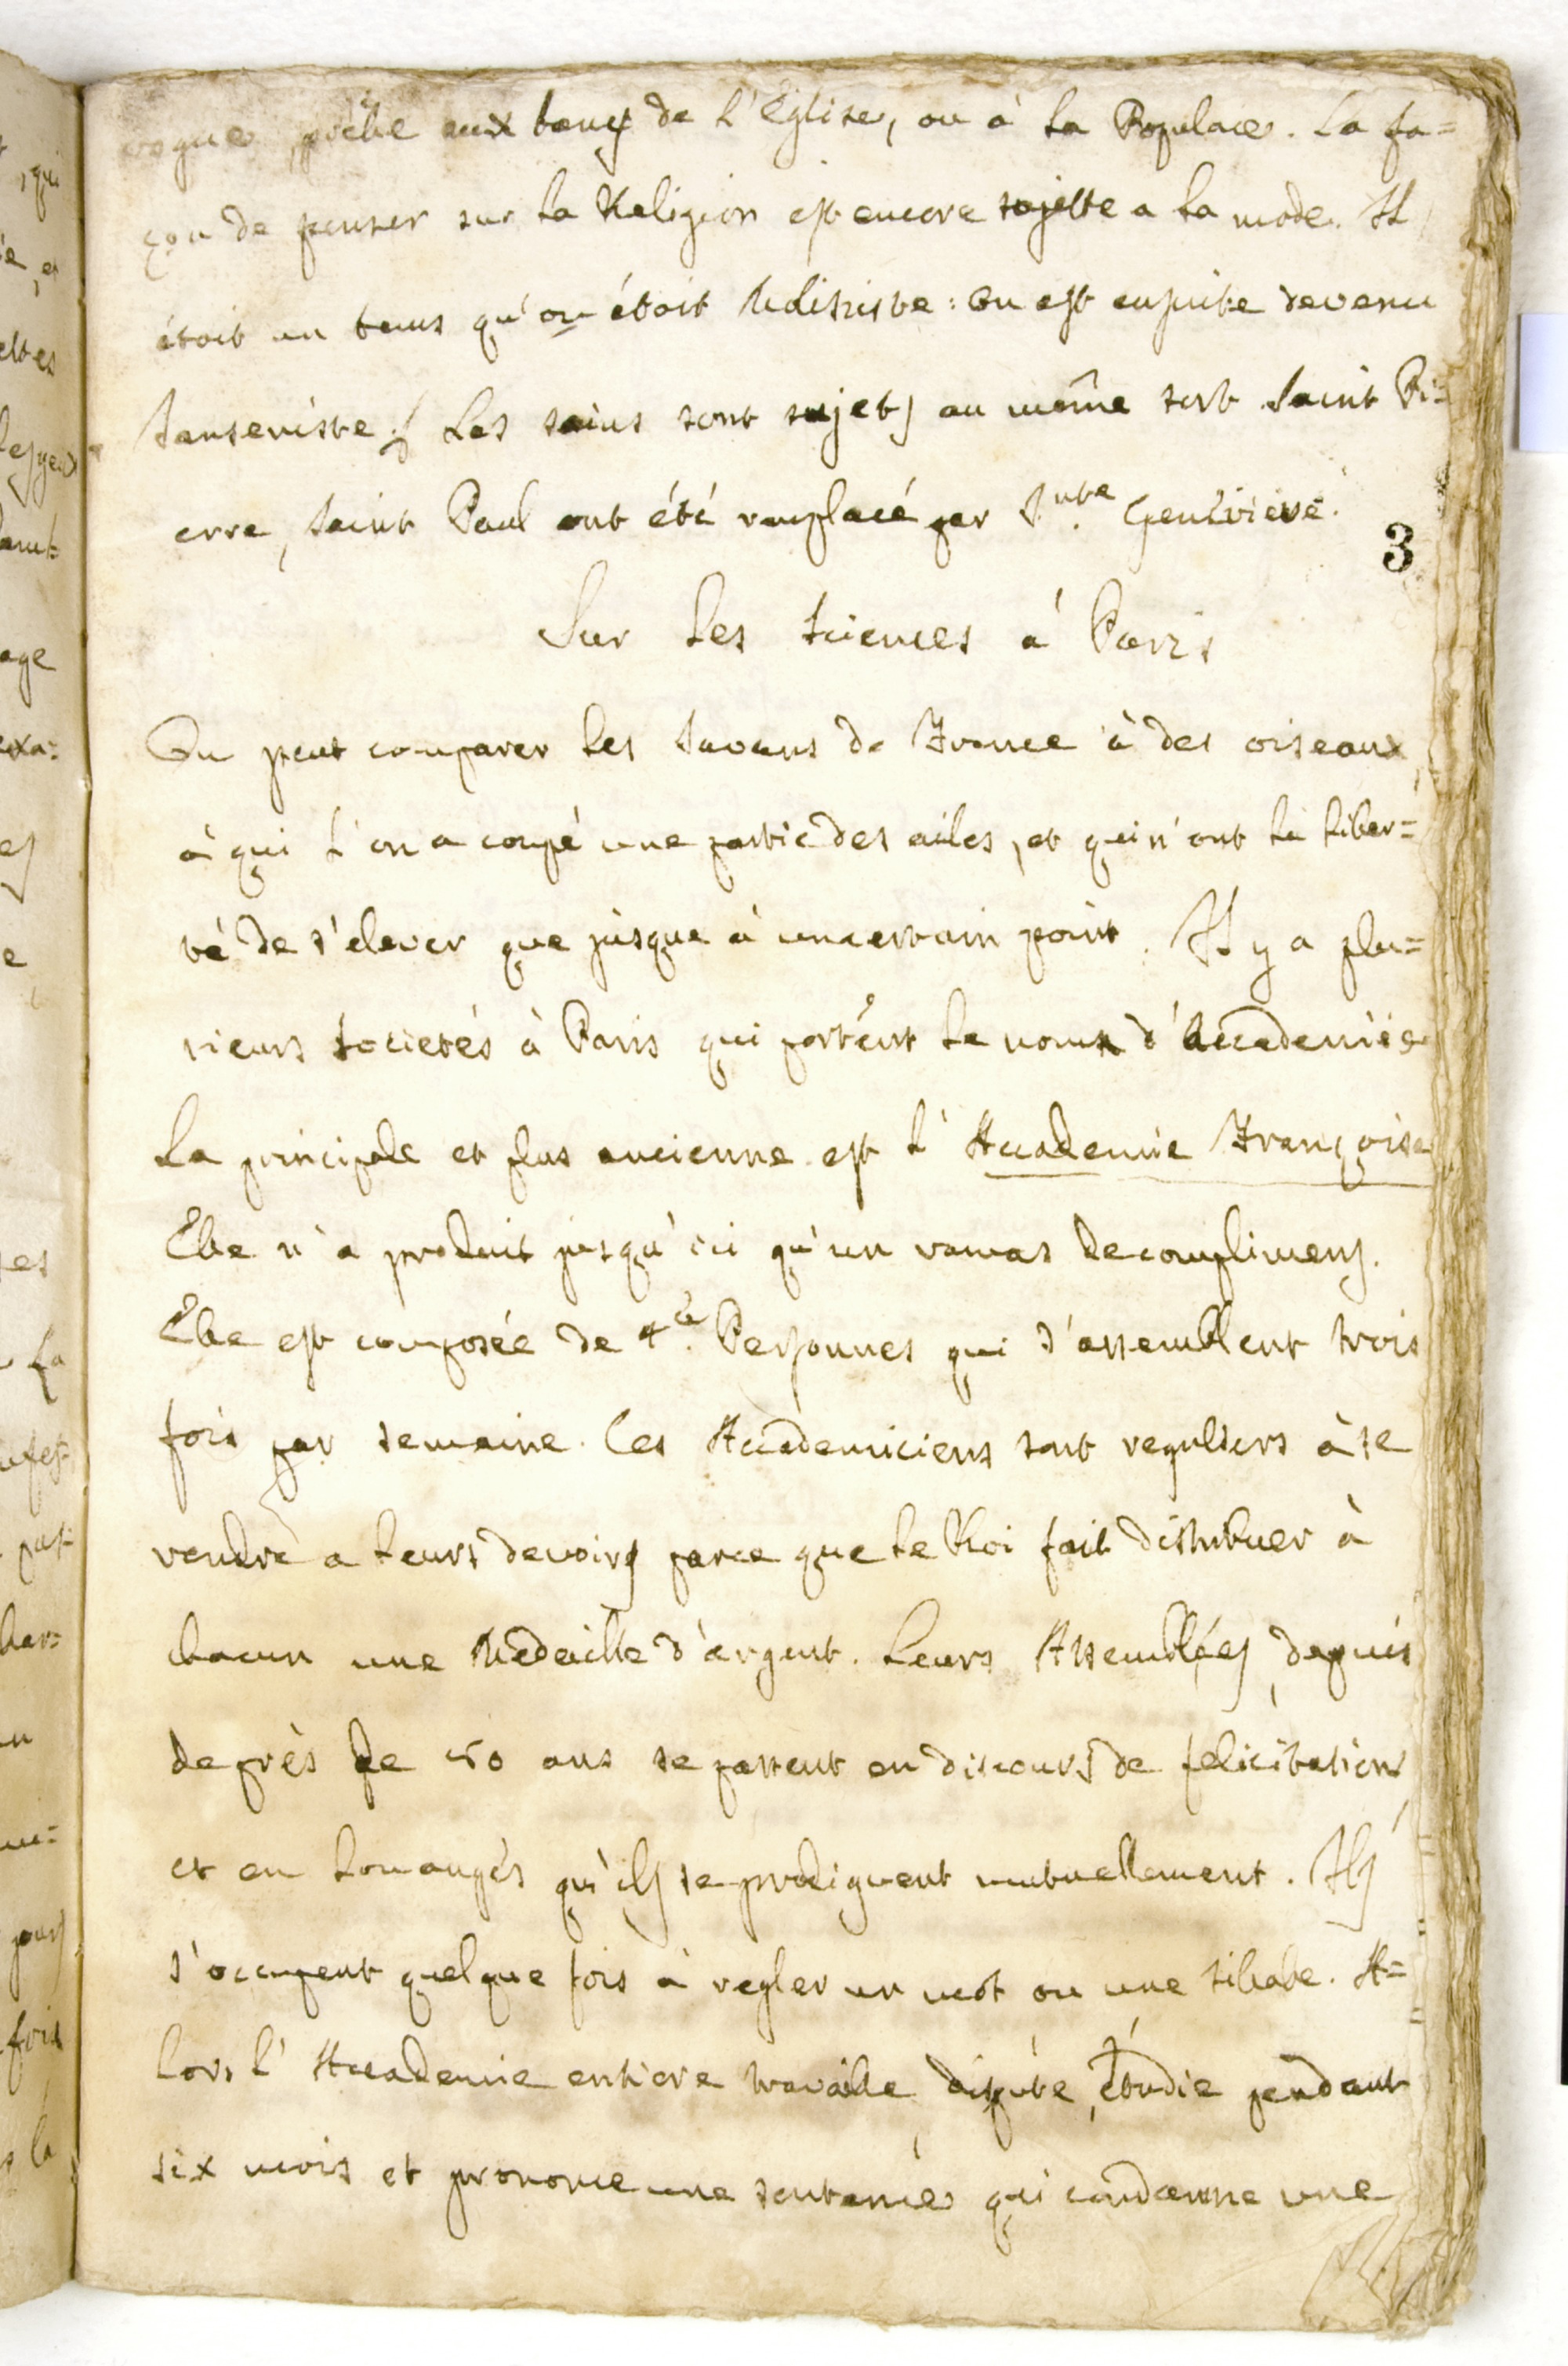 vogue, prêbe aux bancs de l'Eglise, ou à la Populace. La fa=
çon de penser sur la Religion est encore sujette a la mode. Il
étoit un tems qu'on étoit Molisniste: On est ensuite devenu
Janseniste. Les sains sont sujets au même sort. Saint Pi=
erre, Saint Paul ont été remplacé par S.nte Geneviève.
3
Sur les sciences à Paris
On peut comparer les Savans de France à des oiseaux,
à qui l'on a coupé une partie des ailes, et qui n'ont la liber=
té de s'elever que jusque à un certain point. Il y a plu=
sieurs societés à Paris qui portent le nom d'Accademiée
La principale et plus ancienne est l'Accademie Françoise
Elle n'a produit jusqu'ici qu'un ramas de complimens.
Elle est composée de Personnes qui s'assemblent trois
fois par semaine. Ces Accademiciens sont reguliers à se
rendre a leurs devoirs parce que le Roi fait distribuer à
chacun une Medaille d'argent. Leurs Assemblées, depuis
de près de 50 ans se passent en discours de felicitation,
et en louanges qu'ils se prodiguent mutuellement. Ils
s'occupent quelque fois à regler un mot ou une silabe. A=
lors l'Accademie entiere travaille, dispute, étudie pendant
six mois et prononce une sentence qui condamne une